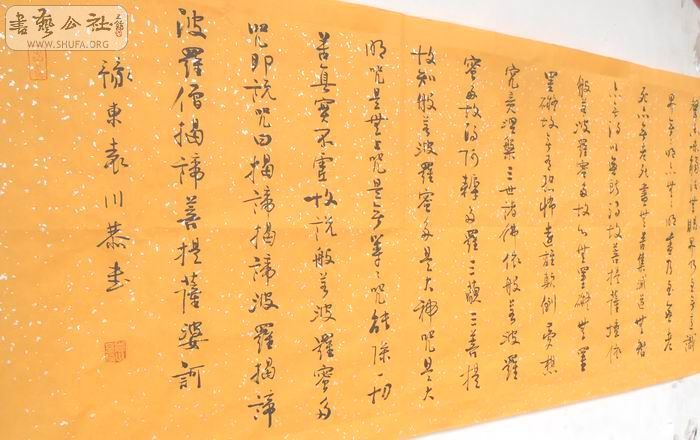 界無無明亦無無明盡乃至無老
死亦無老死盡無苦集滅道無智
亦無得以無所得故菩提薩埵依
般若波羅蜜多故心無罣礙無罣
罣礙故無有恐怖遠離顛倒夢想
究竟涅槃三世諸佛依般若波羅
蜜多故得阿耨多羅三藐三菩提
故知般若波羅蜜多是大神咒是大
明咒是無上咒是無等〻咒能除一切
苦真實不虛故說般若波羅蜜多
咒即說咒曰揭諦揭諦波羅揭諦
波羅僧揭諦菩提薩婆訶
豫東袁川恭書
書藝公社
WWW.SHUFA.ORG